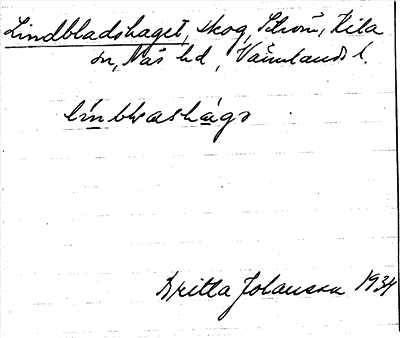 Lindbladshaget, skog, Strom, Kila
sn, Näs hd, Värmlands l.
línbƚashágə
Britta Johansson 1934